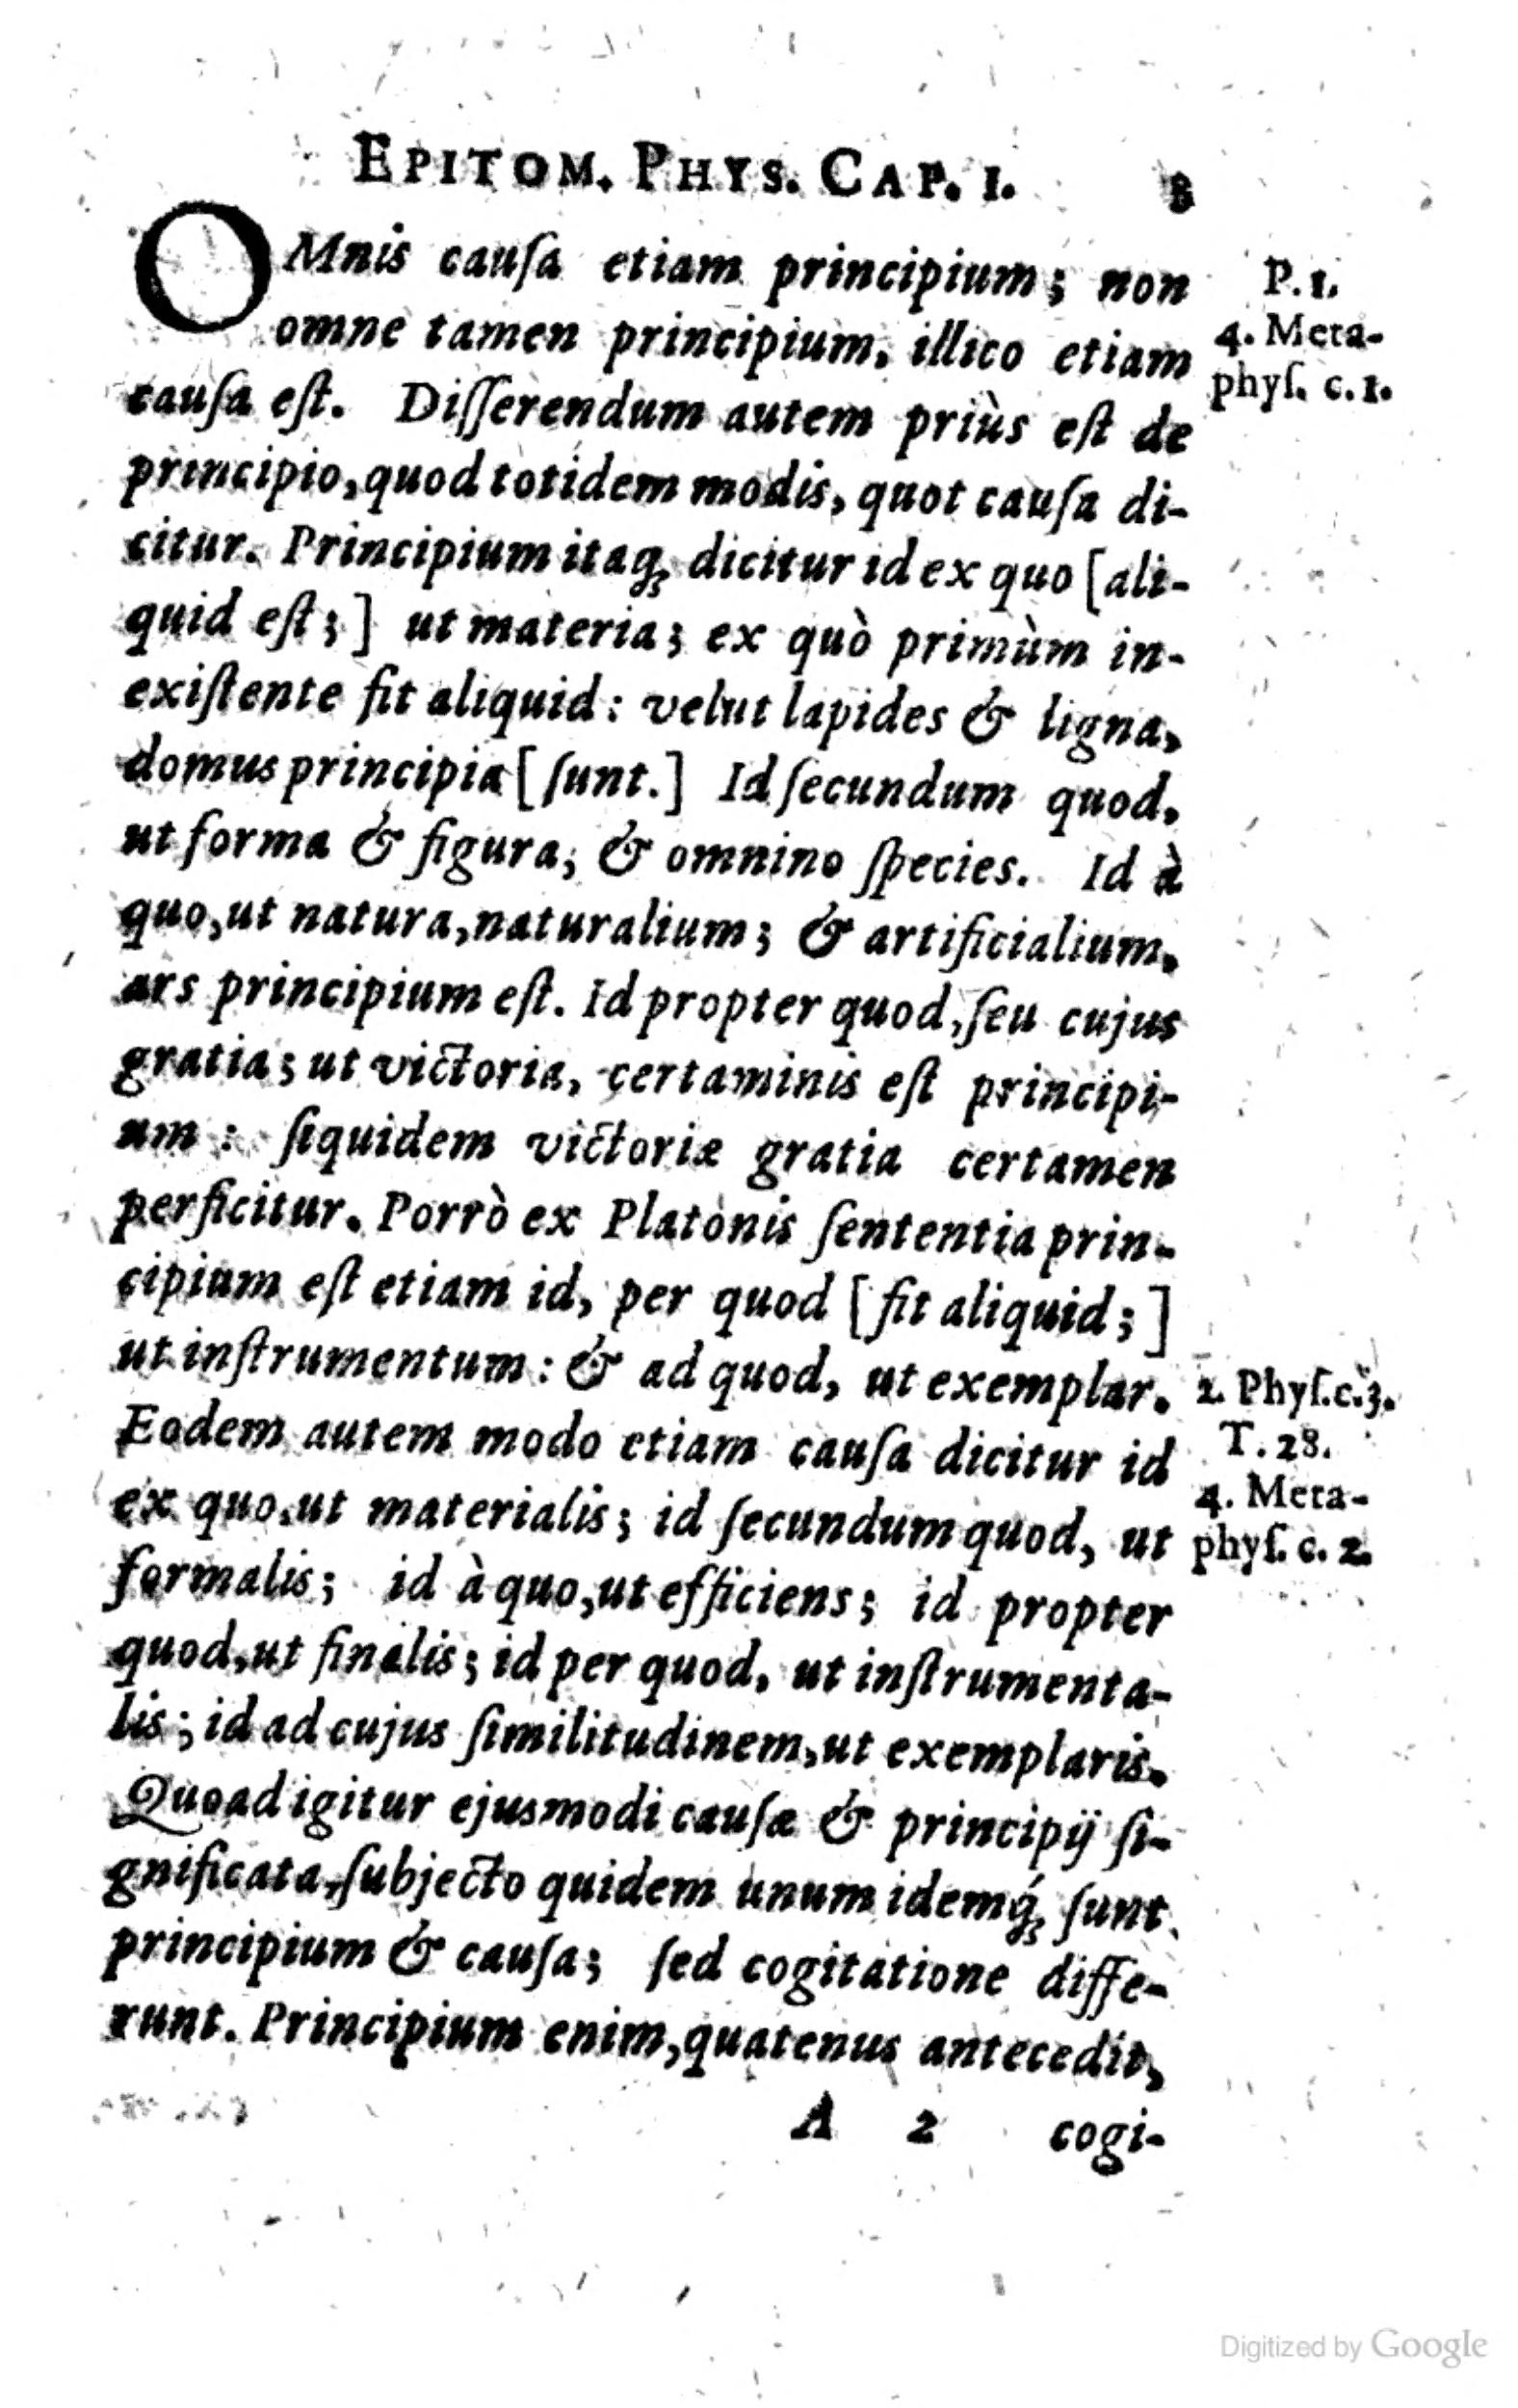 EPITOM. PHYS. CAP. I. 8
OMnis cauſa etiam principium; non
omne tamen principium, illico etiam
cauſa eſt. Diſſerendum autem priùs eſt de
principio, quod totidem modis, quot cauſa di-
citur. Principium itaq; dicitur id ex quo [ali-
quid eſt;] ut materia; ex quò primùm in-
exiſtente fit aliquid: velut lapides & ligna,
domus principia [ſunt.] Id ſecundum quod,
ut forma & figura, & omnino ſpecies. Id à
quo, ut natura, naturalium; & artificialium,
ars principium eſt. Id propter quod, ſeu cujus
gratia; ut victoria, certaminis eſt principi-
um: ſiquidem victoriæ gratia certamen
perficitur. Porrò ex Platonis ſententia prin-
cipium eſt etiam id, per quod [fit aliquid;]
ut inſtrumentum: & ad quod, ut exemplar.
Eodem autem modo etiam cauſa dicitur id
ex quo, ut materialis; id ſecundum quod, ut
formalis; id à quo, ut efficiens; id propter
quod, ut finalis; id per quod, ut inſtrumenta-
lis; id ad cujus ſimilitudinem, ut exemplaris.
Quoad igitur ejusmodi cauſæ & principij ſi-
gnificata, ſubjecto quidem unum idemq́; ſunt
principium & cauſa; ſed cogitatione diffe-
runt. Principium enim, quatenus antecedit,
A 2 cogi-
P. 1.
4. Meta-
phyſ. c. 1.
2. Phyſ. c. 3.
T. 28.
4. Meta-
phyſ. c. 2.
Digitized by Google